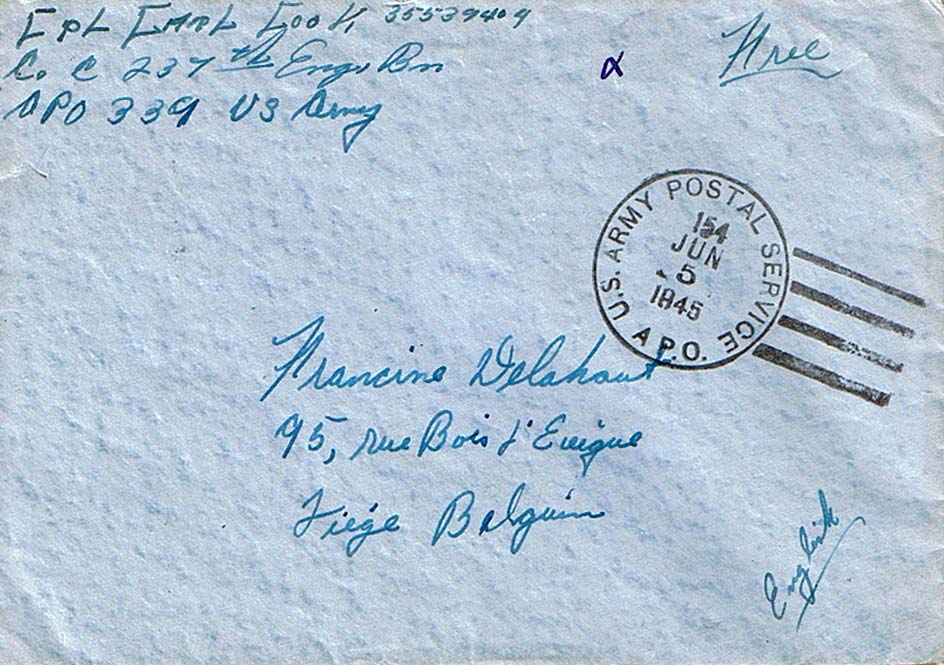 Cpl Emil Cook 35539409
Co C 237th Engr Bn
APO 339 US Army
Free
U.S. ARMY POSTAL SERVICE
154
JUN
5
1945
A.P.O.
Francine Delahaut
95, rue Bois d'Evêque
Liége Belguim
English